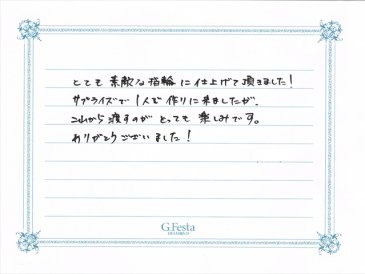 とても素敵な指輪に仕上げて頂きました!
サプライズで1人で作りに来ましたが、
これから渡すのがとっても楽しみです。
ありがとうございました!
G.Festa